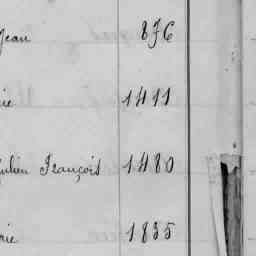 Jean 876
rie 1411
Julien François 1480
rie 1835